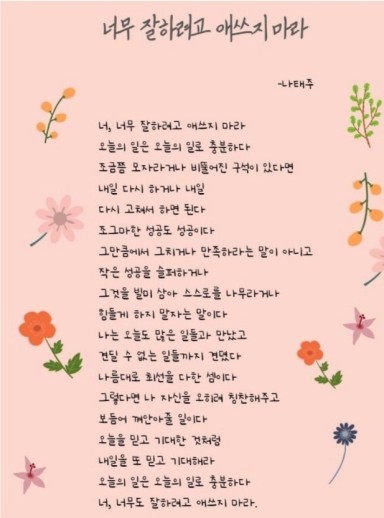 너무 잘하려고 애쓰지 마라
-나태주
너, 너무 잘하려고 애쓰지 마라
오늘의 일은 오늘의 일로 충분하다
조금쯤 모자라거나 비뚤어진 구석이 있다면
내일 다시 하거나 내일
다시 고쳐서 하면 된다
조그마한 성공도 성공이다
그만큼에서 그치거나 만족하라는 말이 아니고
작은 성공을 슬퍼하거나
그것을 빌미 삼아 스스로를 나무라거나
힘들게 하지 말자는 말이다
나는 오늘도 많은 일들과 만났고
견딜 수 없는 일들까지 견뎠다
나름대로 최선을 다한 셈이다
그렇다면 나 자신을 오히려 칭찬해주고
보듬어 껴안아줄 일이다
오늘을 믿고 기대한 것처럼
내일을 또 믿고 기대해라
오늘의 일은 오늘의 일로 충분하다
너, 너무도 잘하려고 애쓰지 마라.